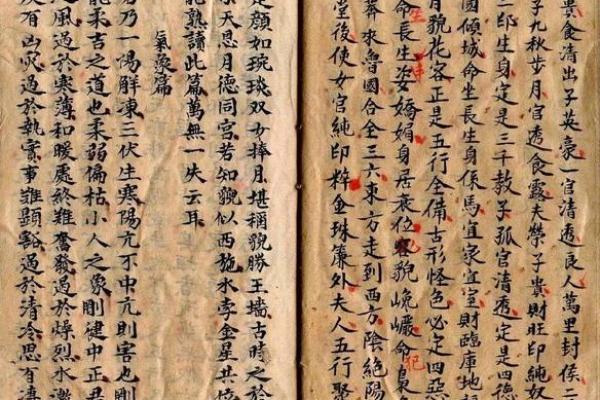 食清出子英豪一官清透良人萬里封侯二
子九秋步月官透食露夫榮子貴財旺印純奴
二卩生身定是三千教子孤官清透定是四德
國傾城命坐長生身係馬宜家宜室財臨庫地
月貌花容正是五行全備古形怪色必定四惡
命長生姿嬌媚身居夜位容貌巉巖命梟
莽來魯國合全三六東方走到西方陰絶陽
堂後使女官純印粹金珠簾外夫人五行聚
是顏如琬琰双女捧月堪稱貌勝王墻古時之於
天恩月德同宮若知貌似西施水孛金星共
能熟讀此篇萬無一失云耳
氣湊篇
乃一陽解凍三伏生寒陽亢不中亢則害也剛
能柔吉之道也柔弱偏枯小人之象剛健中正
風過於寒薄和暖處終難奮發過於燥烈水激
有凶災過於執實事難顯豁過於清冷思有凄